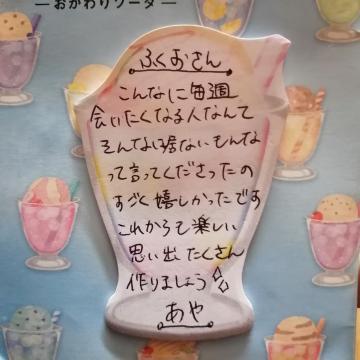 — おかわりソーダ —
ふくおさん
こんなに毎週
会いたくなる人なんて
そんな居ないもんな
って言ってくださったの
すごく嬉しかったです
これからも楽しい
思い出たくさん
作りましょう
あや